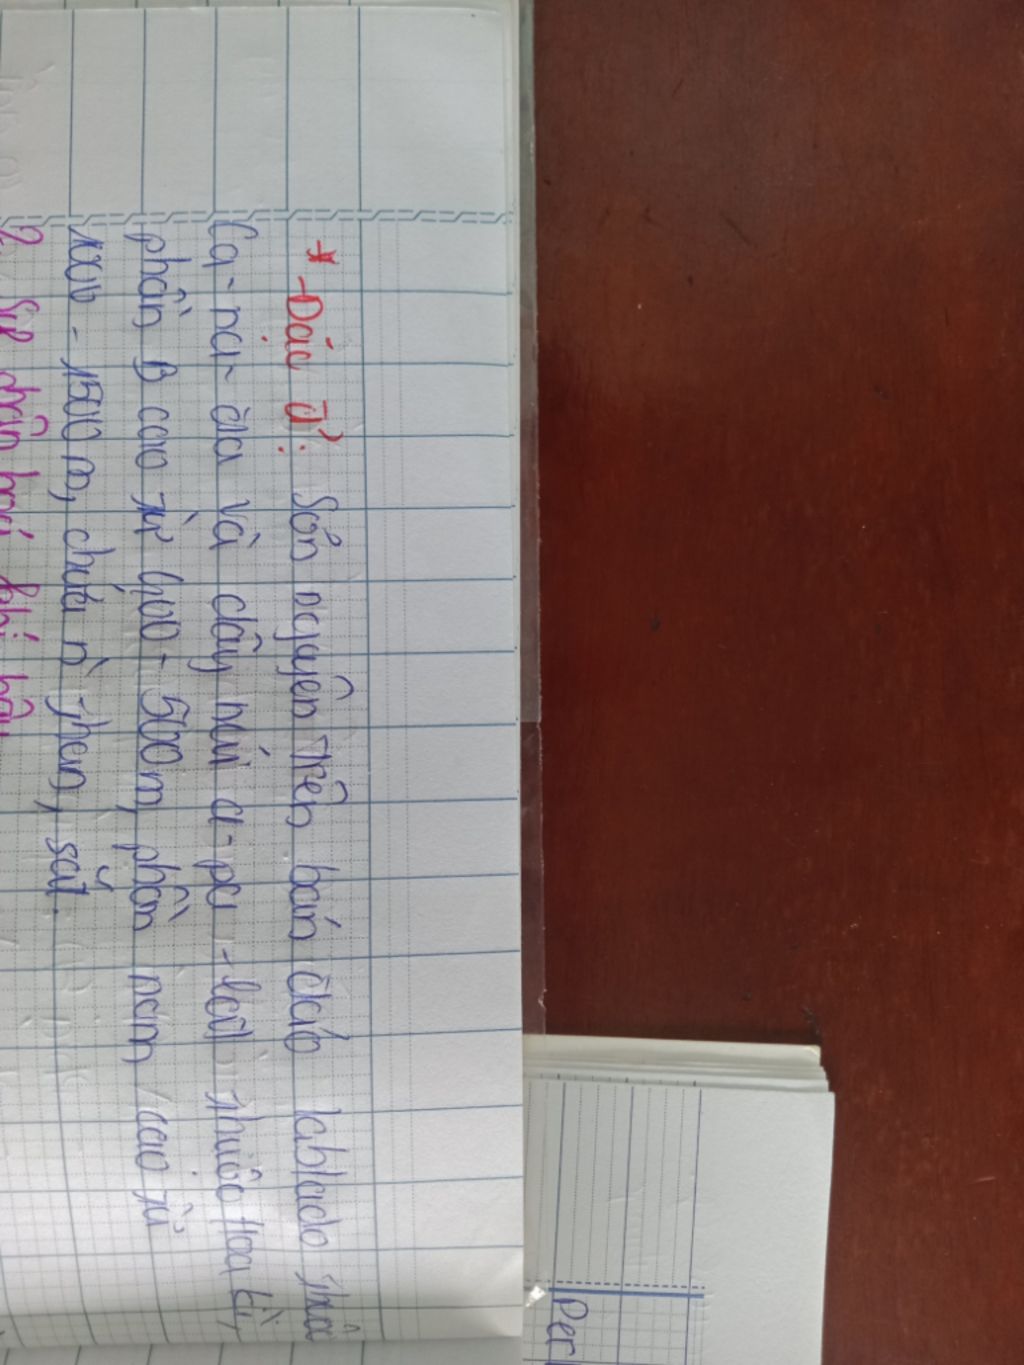 * Đặc đ²: Sơn nguyên trên bán đảo lablado thuộc
Ca-na-đa và dãy núi a-pa-lat thuộc Hoa Kì,
phần B cao từ 400 - 500m, phần nam cao từ
1000 - 1500 m, chứa n` than, sắt.
2. Sự phân hoá khí hậu
Per